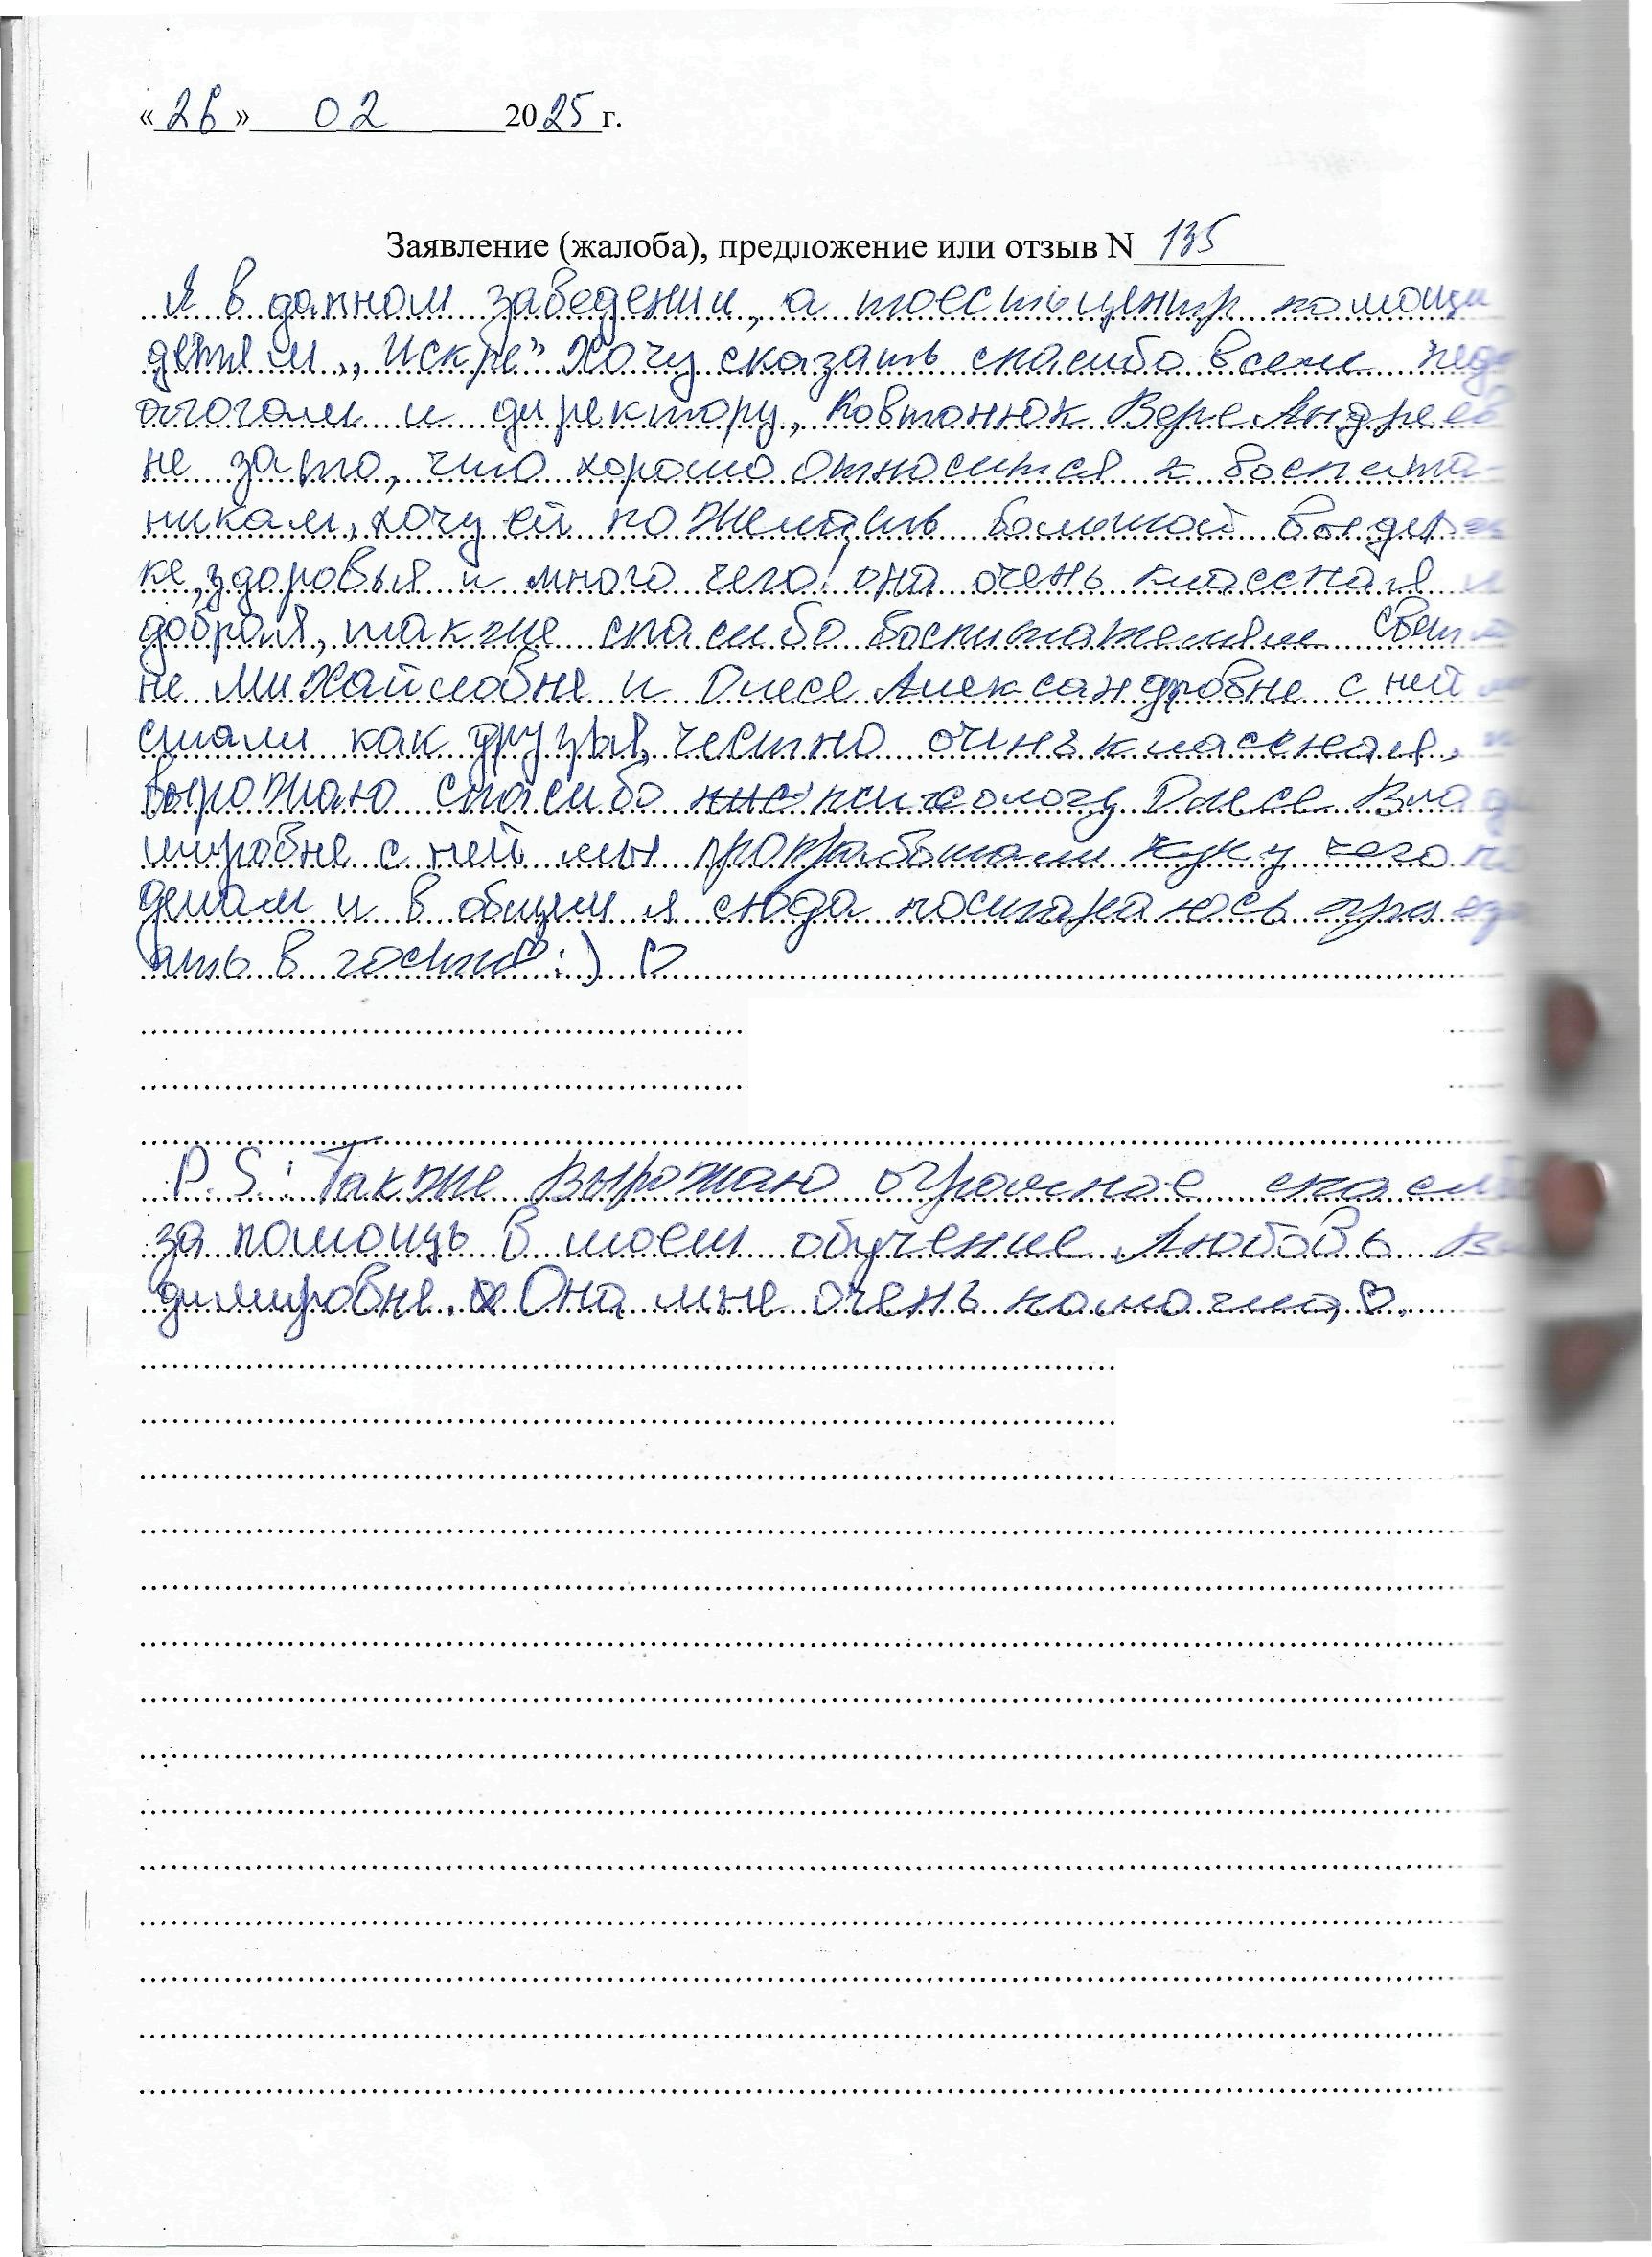 «26» 02 2025 г.
Заявление (жалоба), предложение или отзыв N 135
Я в данном заведении, а тоесть центр помощи
детям ,,Искре" Хочу сказать спасибо всем педо
огогам и директору, Ковтонюк Вере Андреев
не зато, что хорошо относится к воспита-
никам, хочу ей пожелать большой выдер
ке, здоровья и много чего! она очень классная и
добрая, также спасибо воспитателям Светла
не Михайловне и Олесе Александровне с ней
стали как друзья, честно очинь классная,
вырожаю спасибо психологу Олесе Влад
имировне с ней мы проработали кучу чего по
делам и в общем я сюда постараюсь приез
ать в гости♡ :) ♡
P.S.: Также вырожаю огромное спасиб
за помощь в моем обучение Любовь Вл
димировне. Она мне очень помогла, ♡.